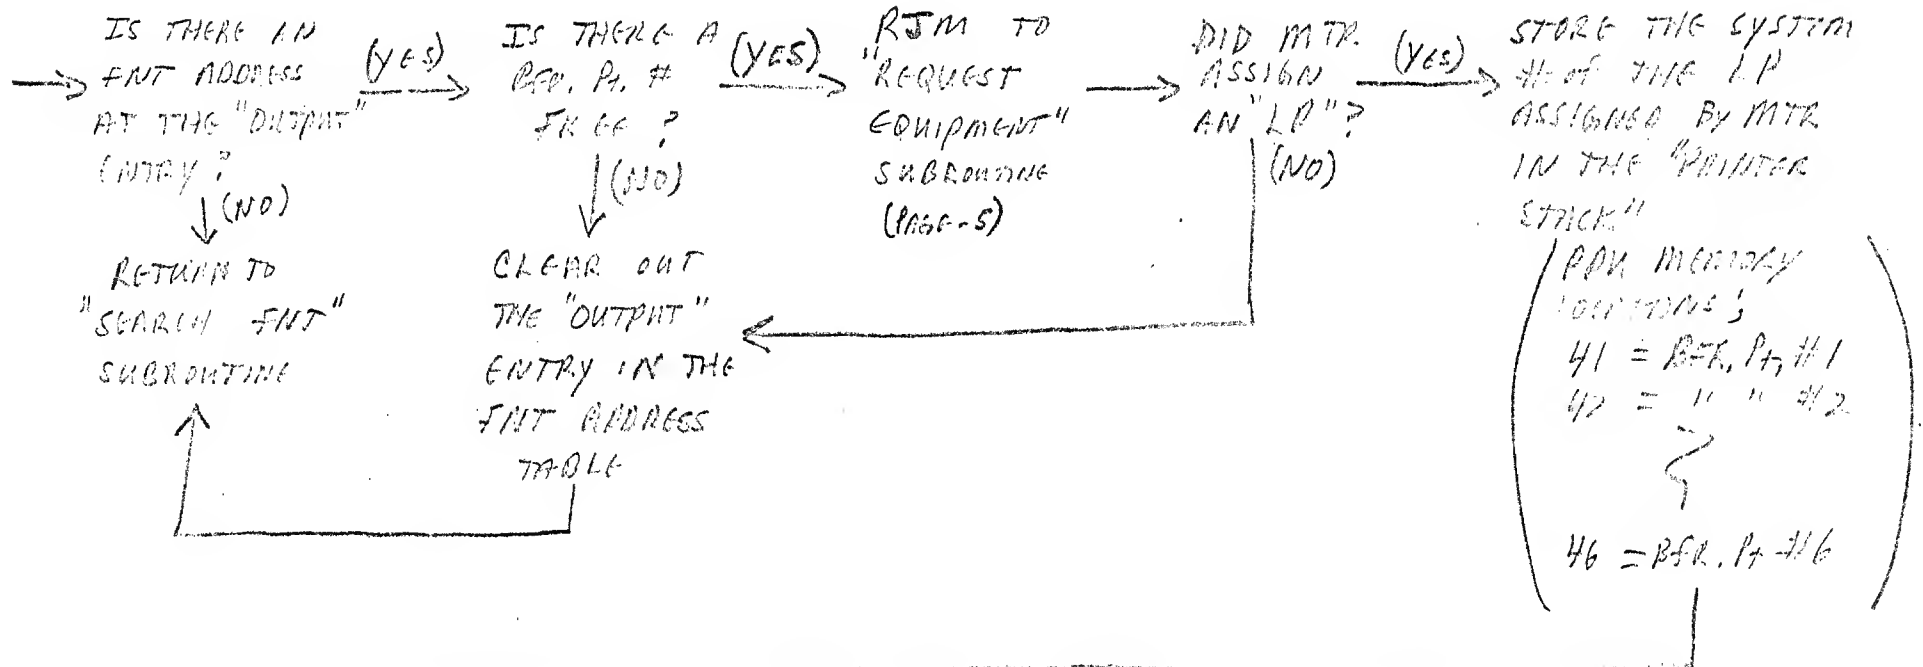 IS THERE AN
FNT ADDRESS
AT THE "OUTPUT"
ENTRY?
(YES)
(NO)
RETURN TO
"SEARCH FNT"
SUBROUTINE
IS THERE A
BFR. Pt. #
FREE?
(YES)
(NO)
CLEAR OUT
THE "OUTPUT"
ENTRY IN THE
FNT ADDRESS
TABLE
RJM TO
"REQUEST
EQUIPMENT"
SUBROUTINE
(PAGE-5)
DID MTR
ASSIGN
AN "LP"?
(YES)
(NO)
STORE THE SYSTEM
# of THE LP
ASSIGNED BY MTR
IN THE "PRINTER
STACK"
PPU MEMORY
LOCATIONS;
41 = BFR. Pt. #1
42 = " " #2
46 = BFR. Pt #6